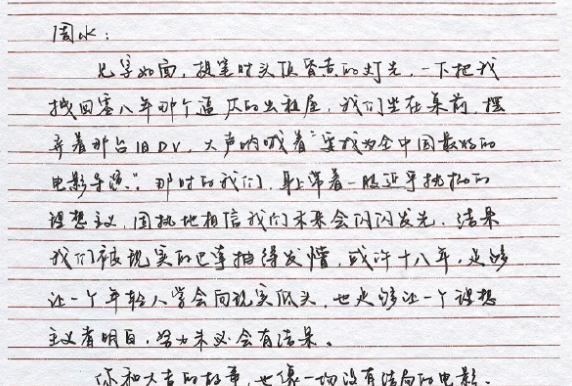 周水：
见字如面，提笔时头顶昏黄的灯光，一下把我
拽回零八年那个逼仄的出租屋，我们坐在桌前，摆
弄着那台旧DV，大声呐喊着“要成为全中国最好的
电影导演”，那时的我们，身上带着一股近乎执拗的
理想主义，固执地相信我们未来会闪闪发光，结果
我们被现实的巴掌抽得发懵，或许十八年，足够
让一个年轻人学会向现实低头，也足够让一个理想
主义者明白，努力未必会有结果。
你和大吉的故事，也像一场没有结局的电影，